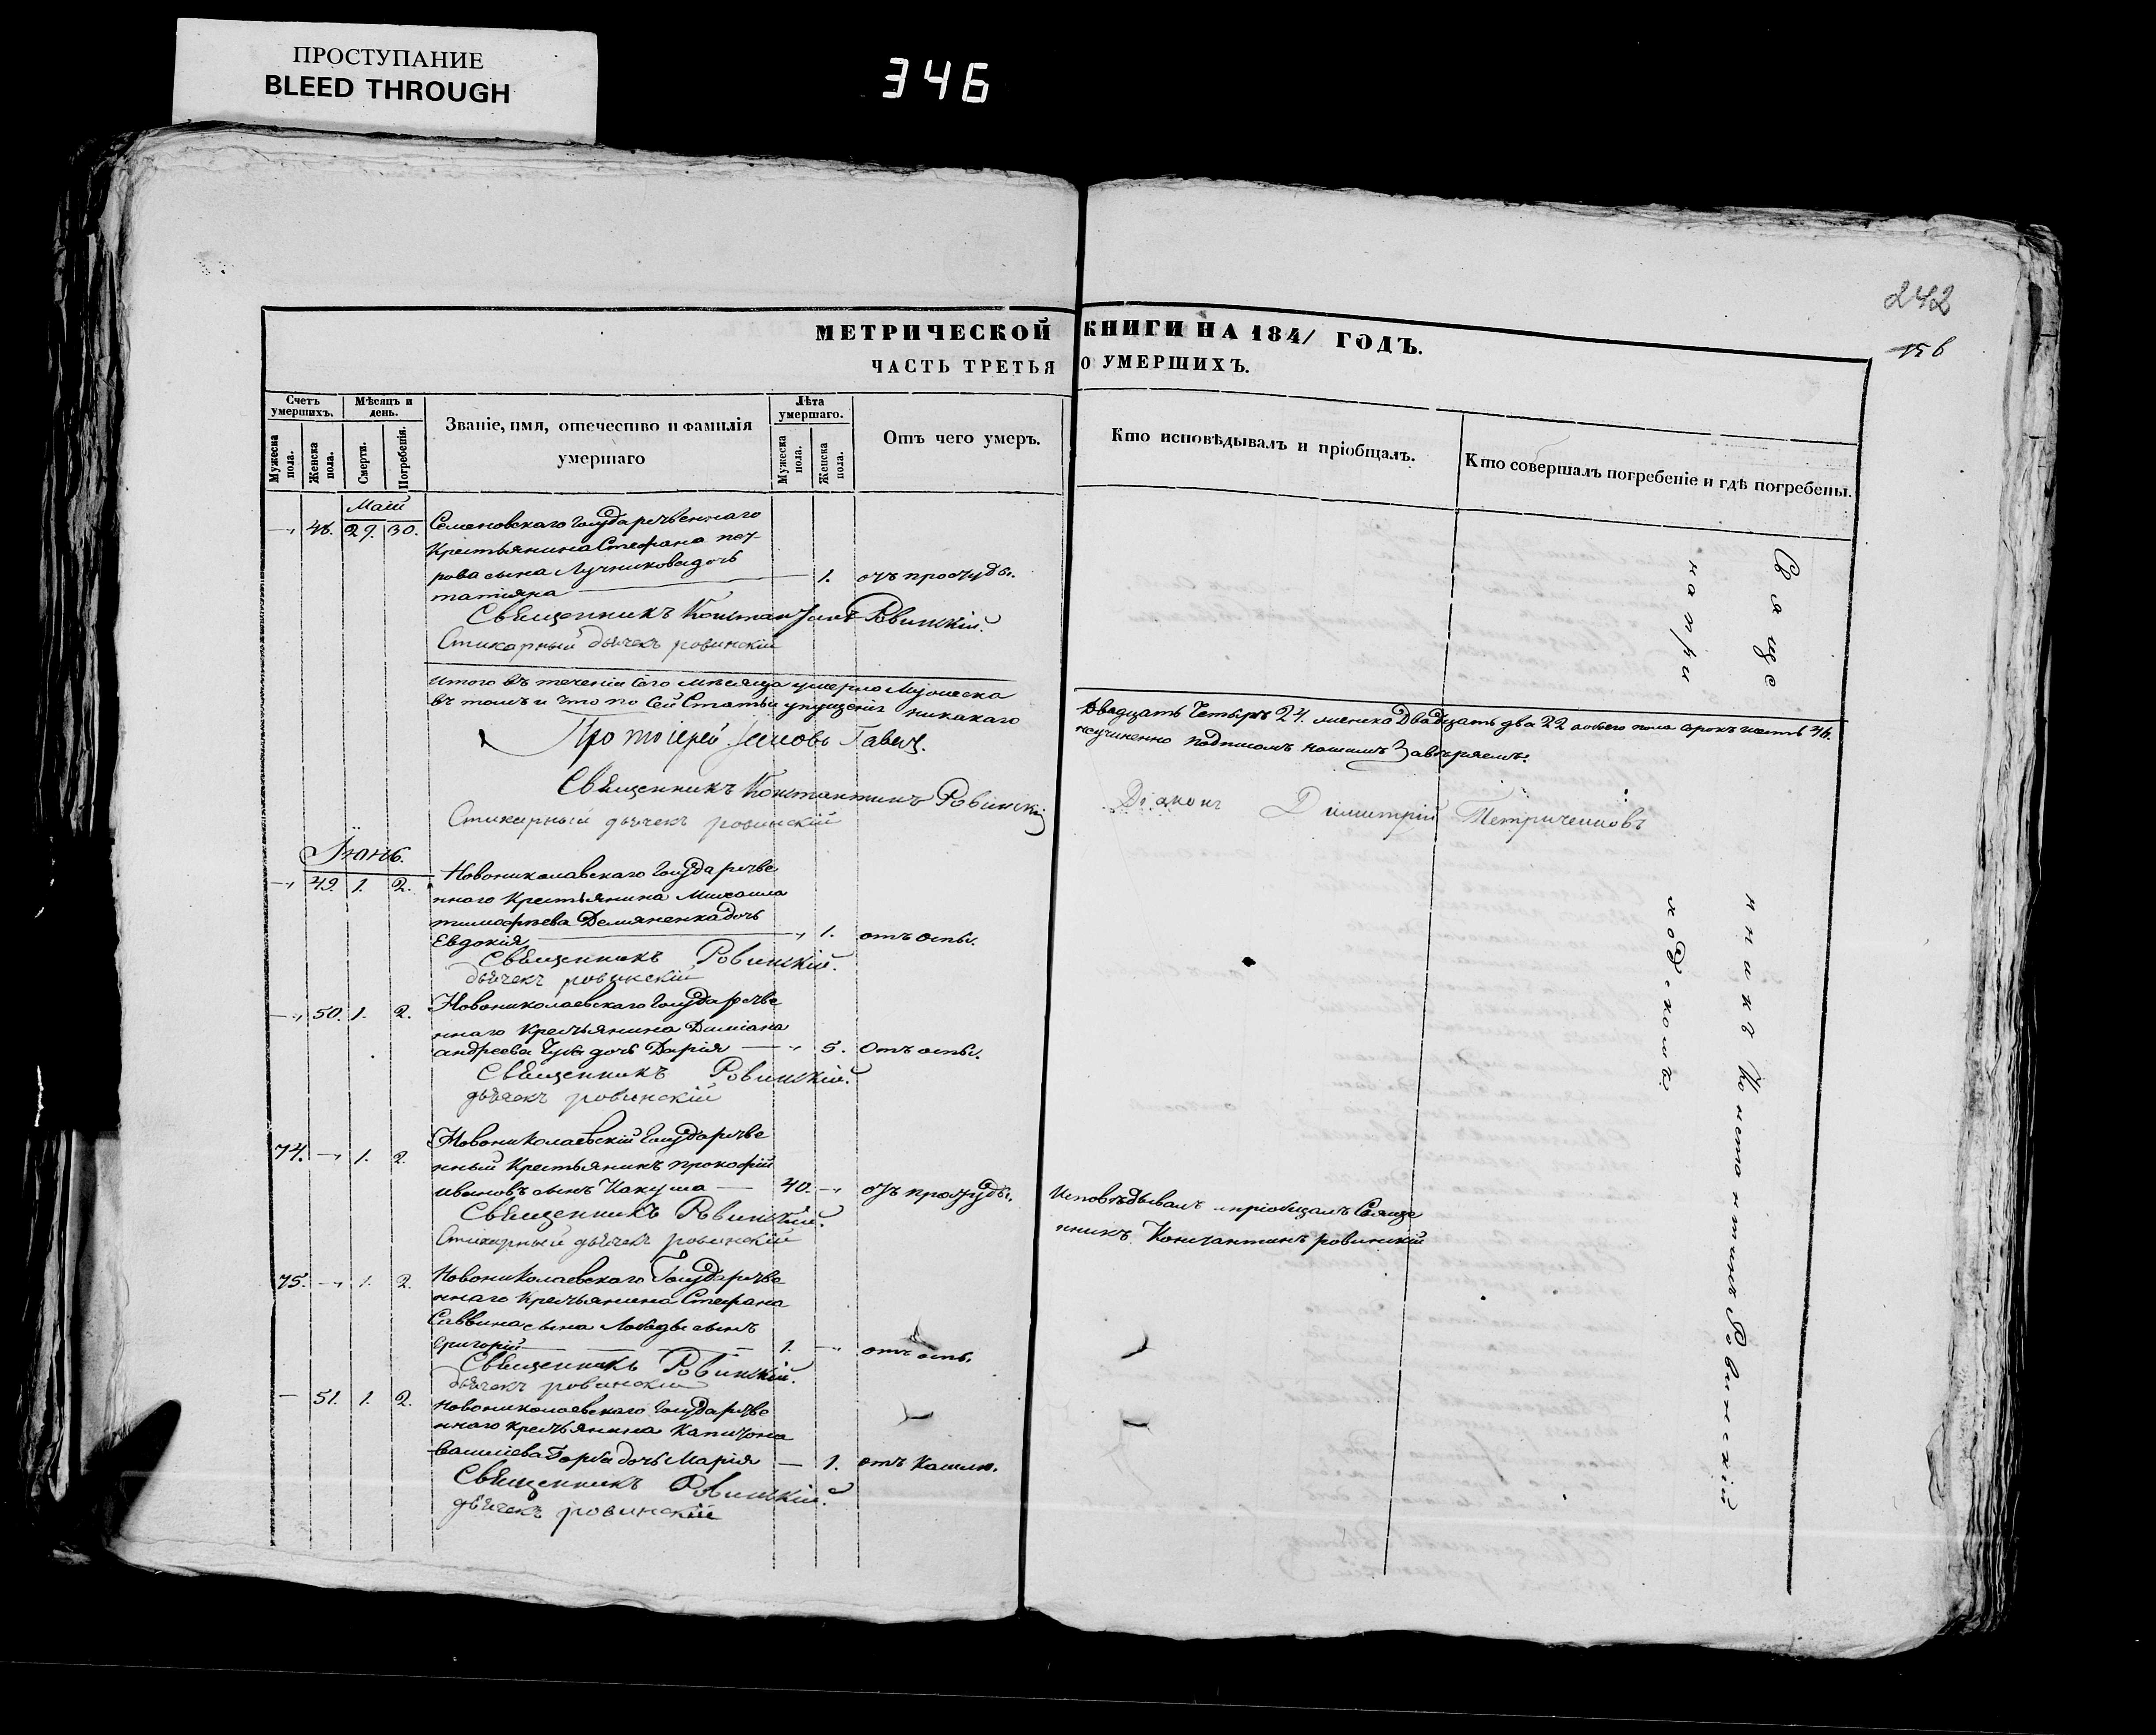 ПРОСТУПАНИЕ
BLEED THROUGH
346
242
156
МЕТРИЧЕСКОЙ КНИГИ НА 1841 ГОДЪ.
ЧАСТЬ ТРЕТЬЯ О УМЕРШИХЪ.
Счетъ умершихъ.
Мужеска пола.
Женска пола.
Мѣсяцъ и день.
Смерти.
Погребенія.
Званіе, имя, отечество и фамилія умершаго
Лѣта умершаго.
Мужеска пола.
Женска пола.
Отъ чего умеръ.
Кто исповѣдывалъ и пріобщалъ.
Кто совершалъ погребеніе и гдѣ погребены.
Маій
48. 29. 30. Семеновскаго Государственнаго
Крестьянина Стефана пет-
рова сына Лучникова дочь
татіяна 1. отъ простуды.
Священникъ Константинъ Ровинскій.
Стихарный дьячекъ ровинскій
Итого въ теченіи сего мѣсяца умерло Мужеска Двадцать Четыре 24. женска Двадцать два 22 а обоего пола сорокъ шесть 46.
въ томъ и что по Сей Статьи упущенія никакаго неучиненно подписомъ нашимъ Завѣряемъ:
Протоіерей
Священникъ Константинъ Ровинскій
Діаконъ Димитрій
Стихарный дьячекъ ровинскій
Іюнь.
49. 1. 2. Новониколавскаго Государстве
ннаго Крестьянина Михаила
тимофѣева Демяненка дочь
Евдокія 1. отъ оспы.
Священникъ Ровинскій.
дьячекъ ровинскій
50. 1. 2. Новониколаевскаго Государстве
ннаго Крестьянина Даміана
андреева дочь Дарія 5. Отъ оспы.
Священникъ Ровинскій.
дьячекъ ровинскій
74. 1. 2. Новониколаевскій Государстве
нный Крестьянинъ прокофій
ивановъ сынъ 40. отъ простуды. Исповѣдывалъ и пріобщалъ Свяще
нникъ Константинъ ровинскій
Священникъ Ровинскій.
Стихарный дьячекъ ровинскій
75. 1. 2. Новониколаевскаго Государстве
ннаго Крестьянина Стефана
Саввина сына Лебеды сынъ
григорій 1. отъ оспы.
Священникъ Ровинскій.
дьячекъ ровинскій
51. 1. 2. Новониколаевскаго Государстве
ннаго крестьянина Капитона
василіева Горба дочь Марія 1. отъ Кашлю.
Священникъ Ровинскій.
дьячекъ ровинскій
Священникъ Константинъ Ровинскій